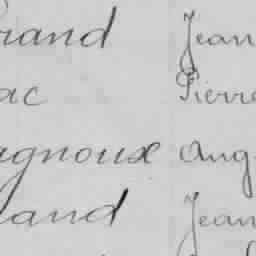 rand Jean
ac Pierre
agnoux Aug
and Jean